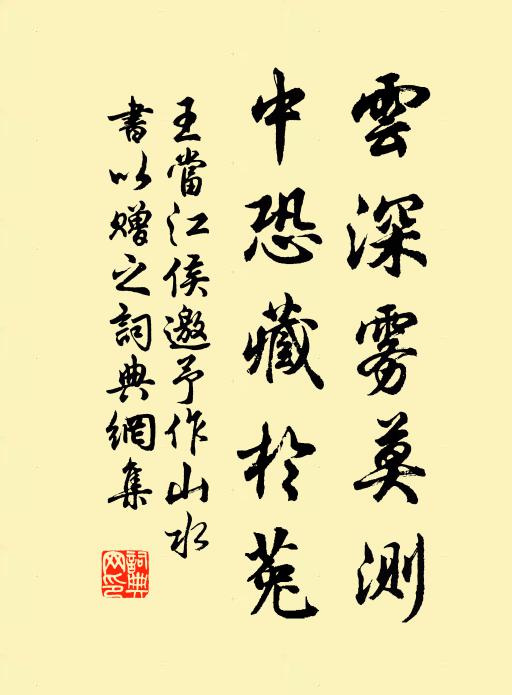 雲深雾莫測
中恐藏於菟
王當江侯邀予作山水
書以赠之詞典網集
詞典网印